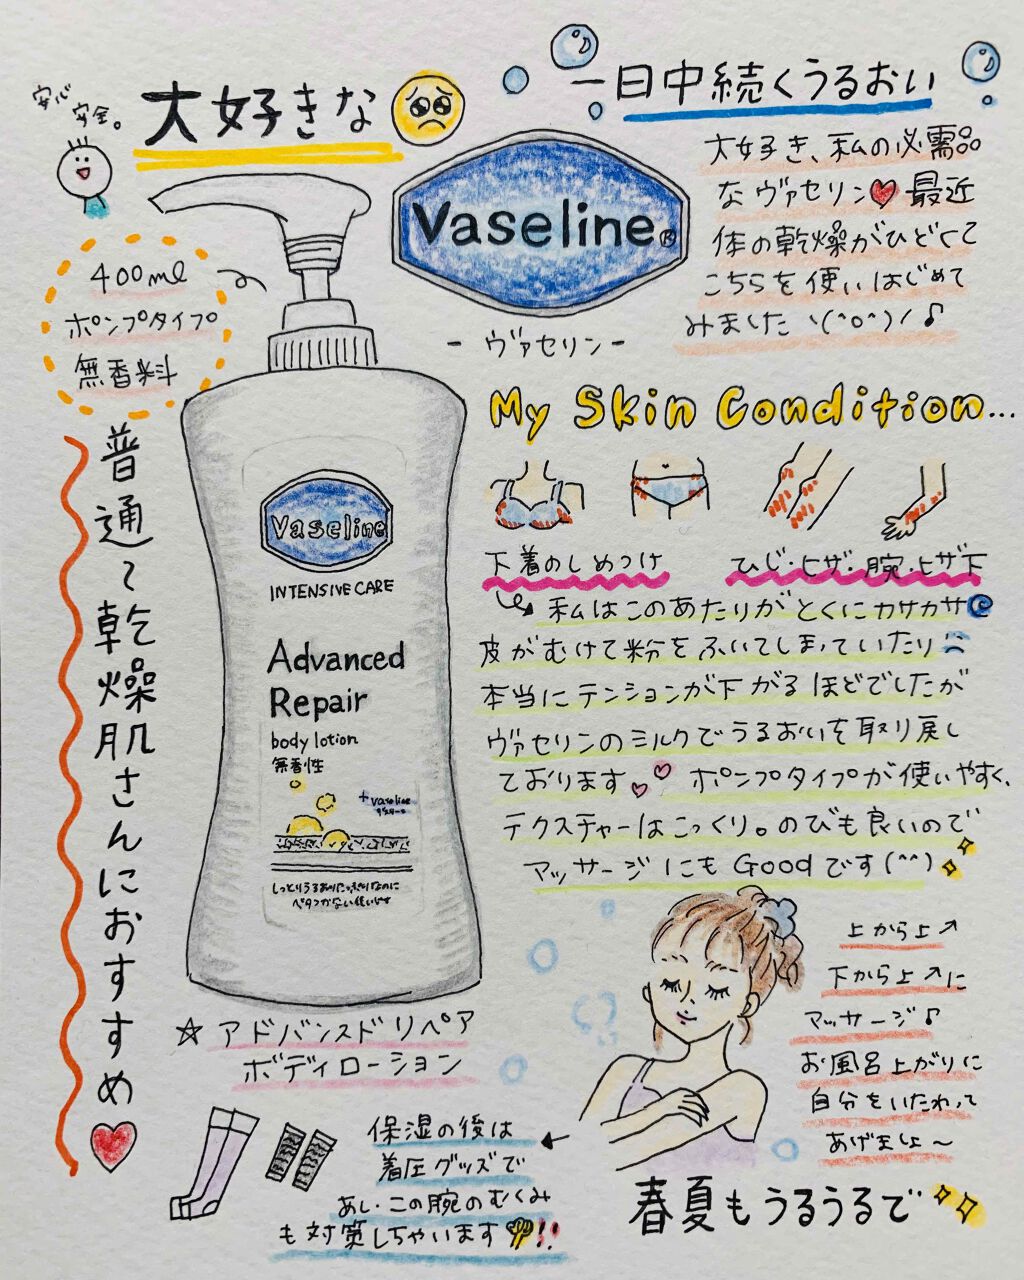 安心
安全。
大好きな
一日中続くうるおい
Vaseline®
- ヴァセリン -
大好き、私の必需品
なヴァセリン❤最近
体の乾燥がひどくて
こちらを使いはじめて
みました ヽ(^o^)ノ♪
400ml
ポンプタイプ
無香料
普通〜乾燥肌さんにおすすめ❤
Vaseline
INTENSIVE CARE
Advanced
Repair
body lotion
無香性
+ vaseline
しっとりうるおりたっぷりなのに
ベタつかない使い
My Skin Condition...
下着のしめつけ
ひじ・ヒザ・腕・ヒザ下
私はこのあたりがとくにカサカサ
皮がむけて粉をふいてしまっていたり
本当にテンションが下がるほどでしたが
ヴァセリンのミルクでうるおいを取り戻し
ております♡♡ ポンプタイプが使いやすく、
テクスチャーはこっくり。のびも良いので
マッサージにもGoodです(^^)
上から上↗
下から上↗に
マッサージ♪
お風呂上がりに
自分をいたわって
あげましょ〜
☆アドバンスドリペア
ボディローション
保湿の後は
着圧グッズで
あし・この腕のむくみ
も対策しちゃいます!!
春夏もうるうるで